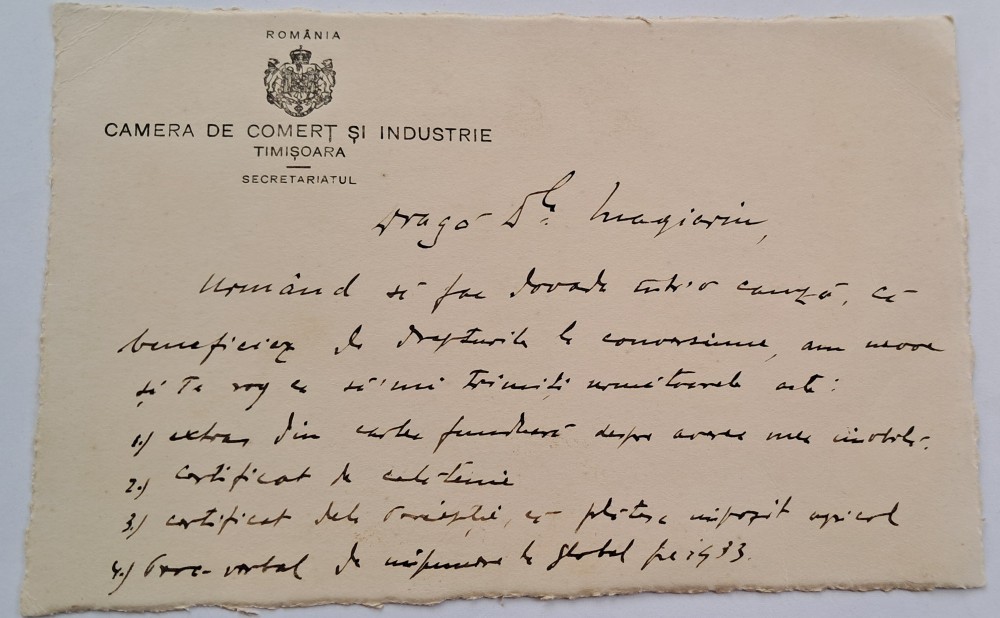 ROMÂNIA
CAMERA DE COMERȚ ȘI INDUSTRIE
TIMIȘOARA
SECRETARIATUL
Dragă Dle Magiariu,
Urmând să fac dovada într'o cauză, că
beneficiez de drepturile de conversiune, am nevoe
și Te rog ca să'mi trimiți următoarele acte:
1.) extras din cartea funduară despre averea mea imobilă.
2.) certificat de cetățenie
3.) certificat dela Percepție, că plătesc impozit agricol
4.) Proc-verbal de impunere la global pe 1933.